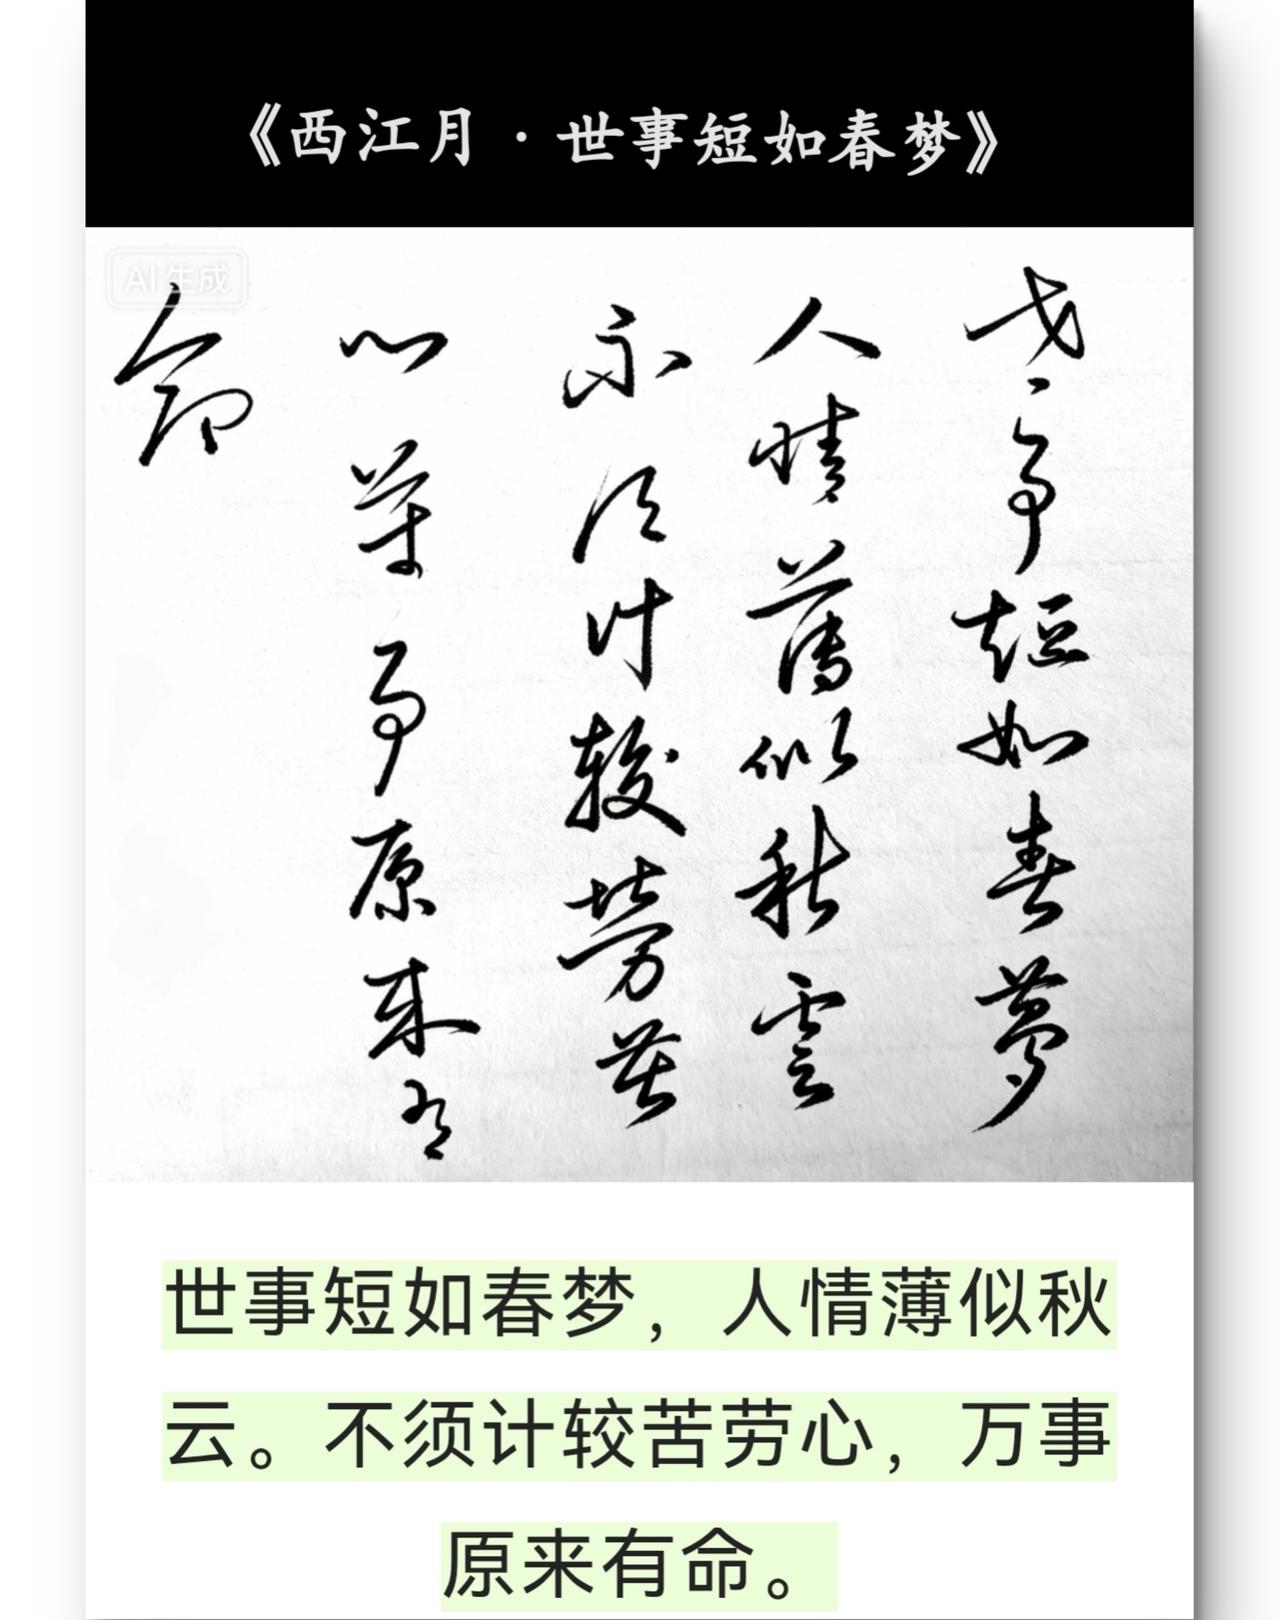 《西江月·世事短如春梦》
AI生成
世事短如春夢
人情薄似秋雲
不須計較勞苦
心萬事原來有
命
世事短如春梦，人情薄似秋
云。不须计较苦劳心，万事
原来有命。